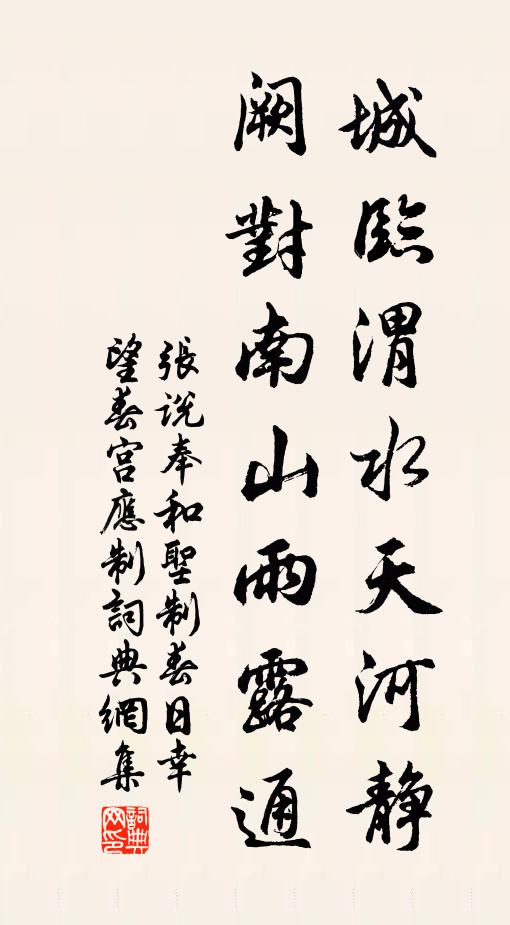 城臨渭水天河静
闕對南山雨露通
張説奉和聖制春日幸
望春宫應制詞典網集
詞典网印